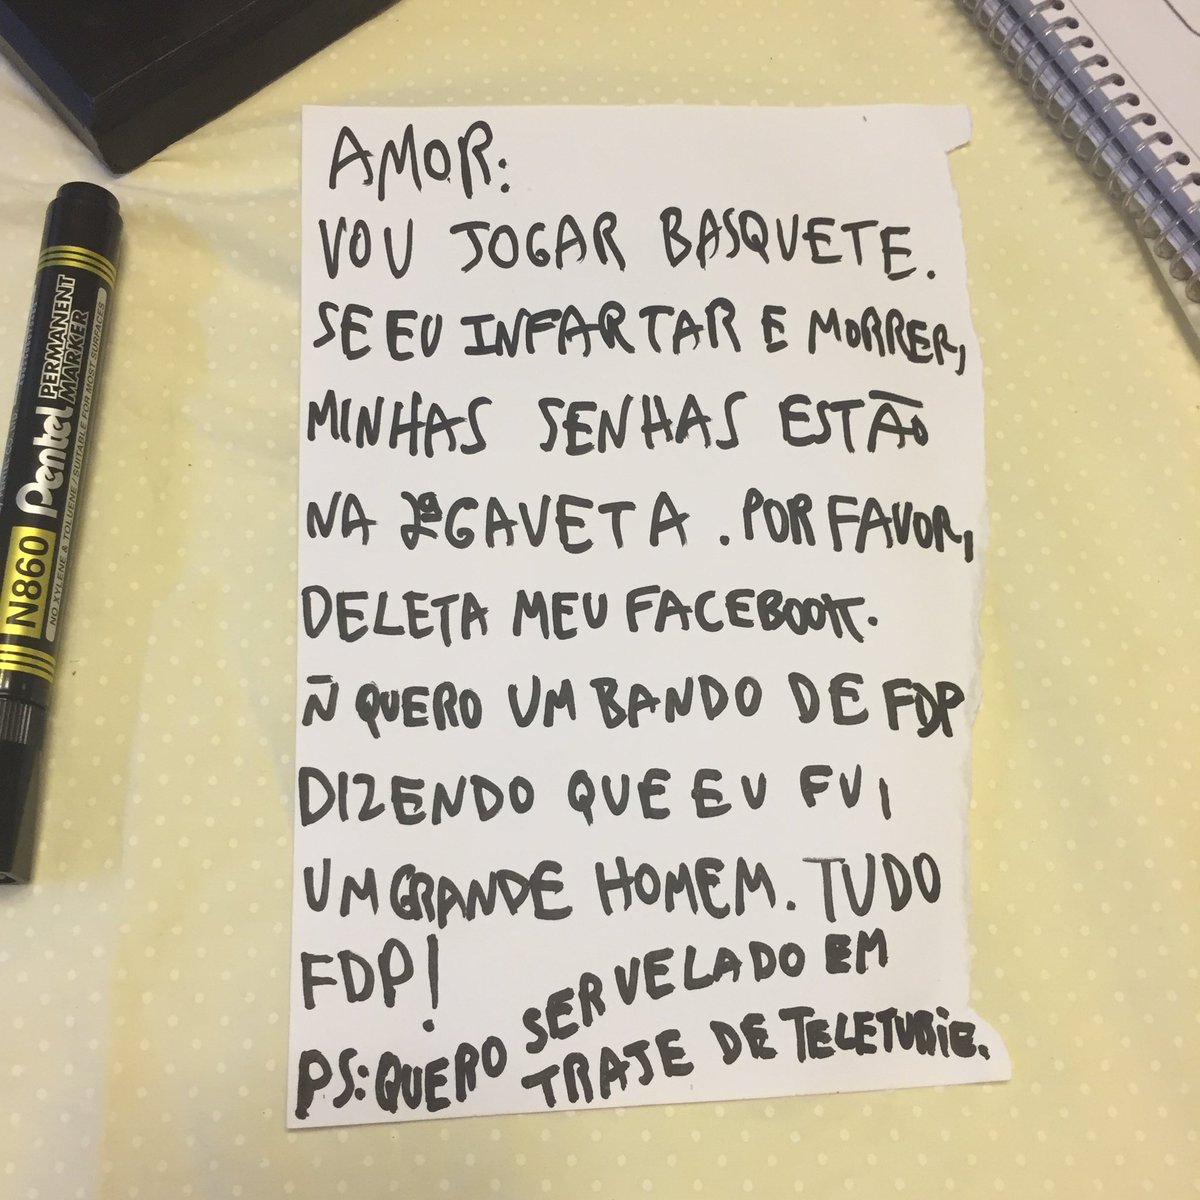 AMOR:
VOU JOGAR BASQUETE.
SE EU INFARTAR E MORRER,
MINHAS SENHAS ESTÃO
NA 2ª GAVETA. POR FAVOR,
DELETA MEU FACEBOOK.
Ñ QUERO UM BANDO DE FDP
DIZENDO QUE EU FUI
UM GRANDE HOMEM. TUDO
FDP!
PS: QUERO SER VELADO EM
TRAJE DE TELETUBiE.
Pentel PERMANENT
MARKER
N860
NO XYLENE & TOLUENE / SUITABLE FOR MOST SURFACES